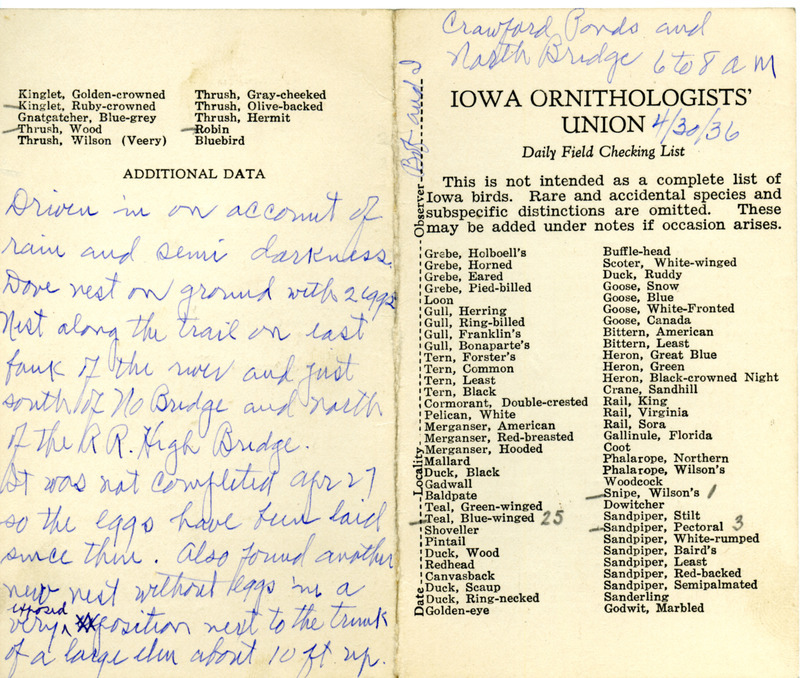 Kinglet, Golden-crowned
Kinglet, Ruby-crowned
Gnatcatcher, Blue-grey
Thrush, Wood
Thrush, Wilson (Veery)
Thrush, Gray-cheeked
Thrush, Olive-backed
Thrush, Hermit
Robin
Bluebird
ADDITIONAL DATA
Driven in on account of
rain and semi darkness.
Dove nest on ground with 2 eggs
Nest along the trail on east
bank of the river and just
south of No Bridge and north
of the R R. High Bridge.
It was not completed Apr 27
so the eggs have been laid
since then. Also found another
new nest without eggs in a
very exposed position next to the trunk
of a large elm about 10 ft up.
Crawford Ponds and
North Bridge 6 to 8 a M
IOWA ORNITHOLOGISTS'
UNION 4/30/36
Daily Field Checking List
This is not intended as a complete list of
Iowa birds. Rare and accidental species and
subspecific distinctions are omitted. These
may be added under notes if occasion arises.
Date Locality Observer Bob and I
Grebe, Holboell's
Grebe, Horned
Grebe, Eared
Grebe, Pied-billed
Loon
Gull, Herring
Gull, Ring-billed
Gull, Franklin's
Gull, Bonaparte's
Tern, Forster's
Tern, Common
Tern, Least
Tern, Black
Cormorant, Double-crested
Pelican, White
Merganser, American
Merganser, Red-breasted
Merganser, Hooded
Mallard
Duck, Black
Gadwall
Baldpate
Teal, Green-winged
Teal, Blue-winged 25
Shoveller
Pintail
Duck, Wood
Redhead
Canvasback
Duck, Scaup
Duck, Ring-necked
Golden-eye
Buffle-head
Scoter, White-winged
Duck, Ruddy
Goose, Snow
Goose, Blue
Goose, White-Fronted
Goose, Canada
Bittern, American
Bittern, Least
Heron, Great Blue
Heron, Green
Heron, Black-crowned Night
Crane, Sandhill
Rail, King
Rail, Virginia
Rail, Sora
Gallinule, Florida
Coot
Phalarope, Northern
Phalarope, Wilson's
Woodcock
Snipe, Wilson's 1
Dowitcher
Sandpiper, Stilt
Sandpiper, Pectoral 3
Sandpiper, White-rumped
Sandpiper, Baird's
Sandpiper, Least
Sandpiper, Red-backed
Sandpiper, Semipalmated
Sanderling
Godwit, Marbled